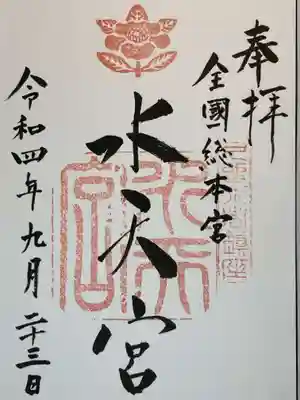 奉拝
全國総本宮
水天宮
令和四年九月二十三日